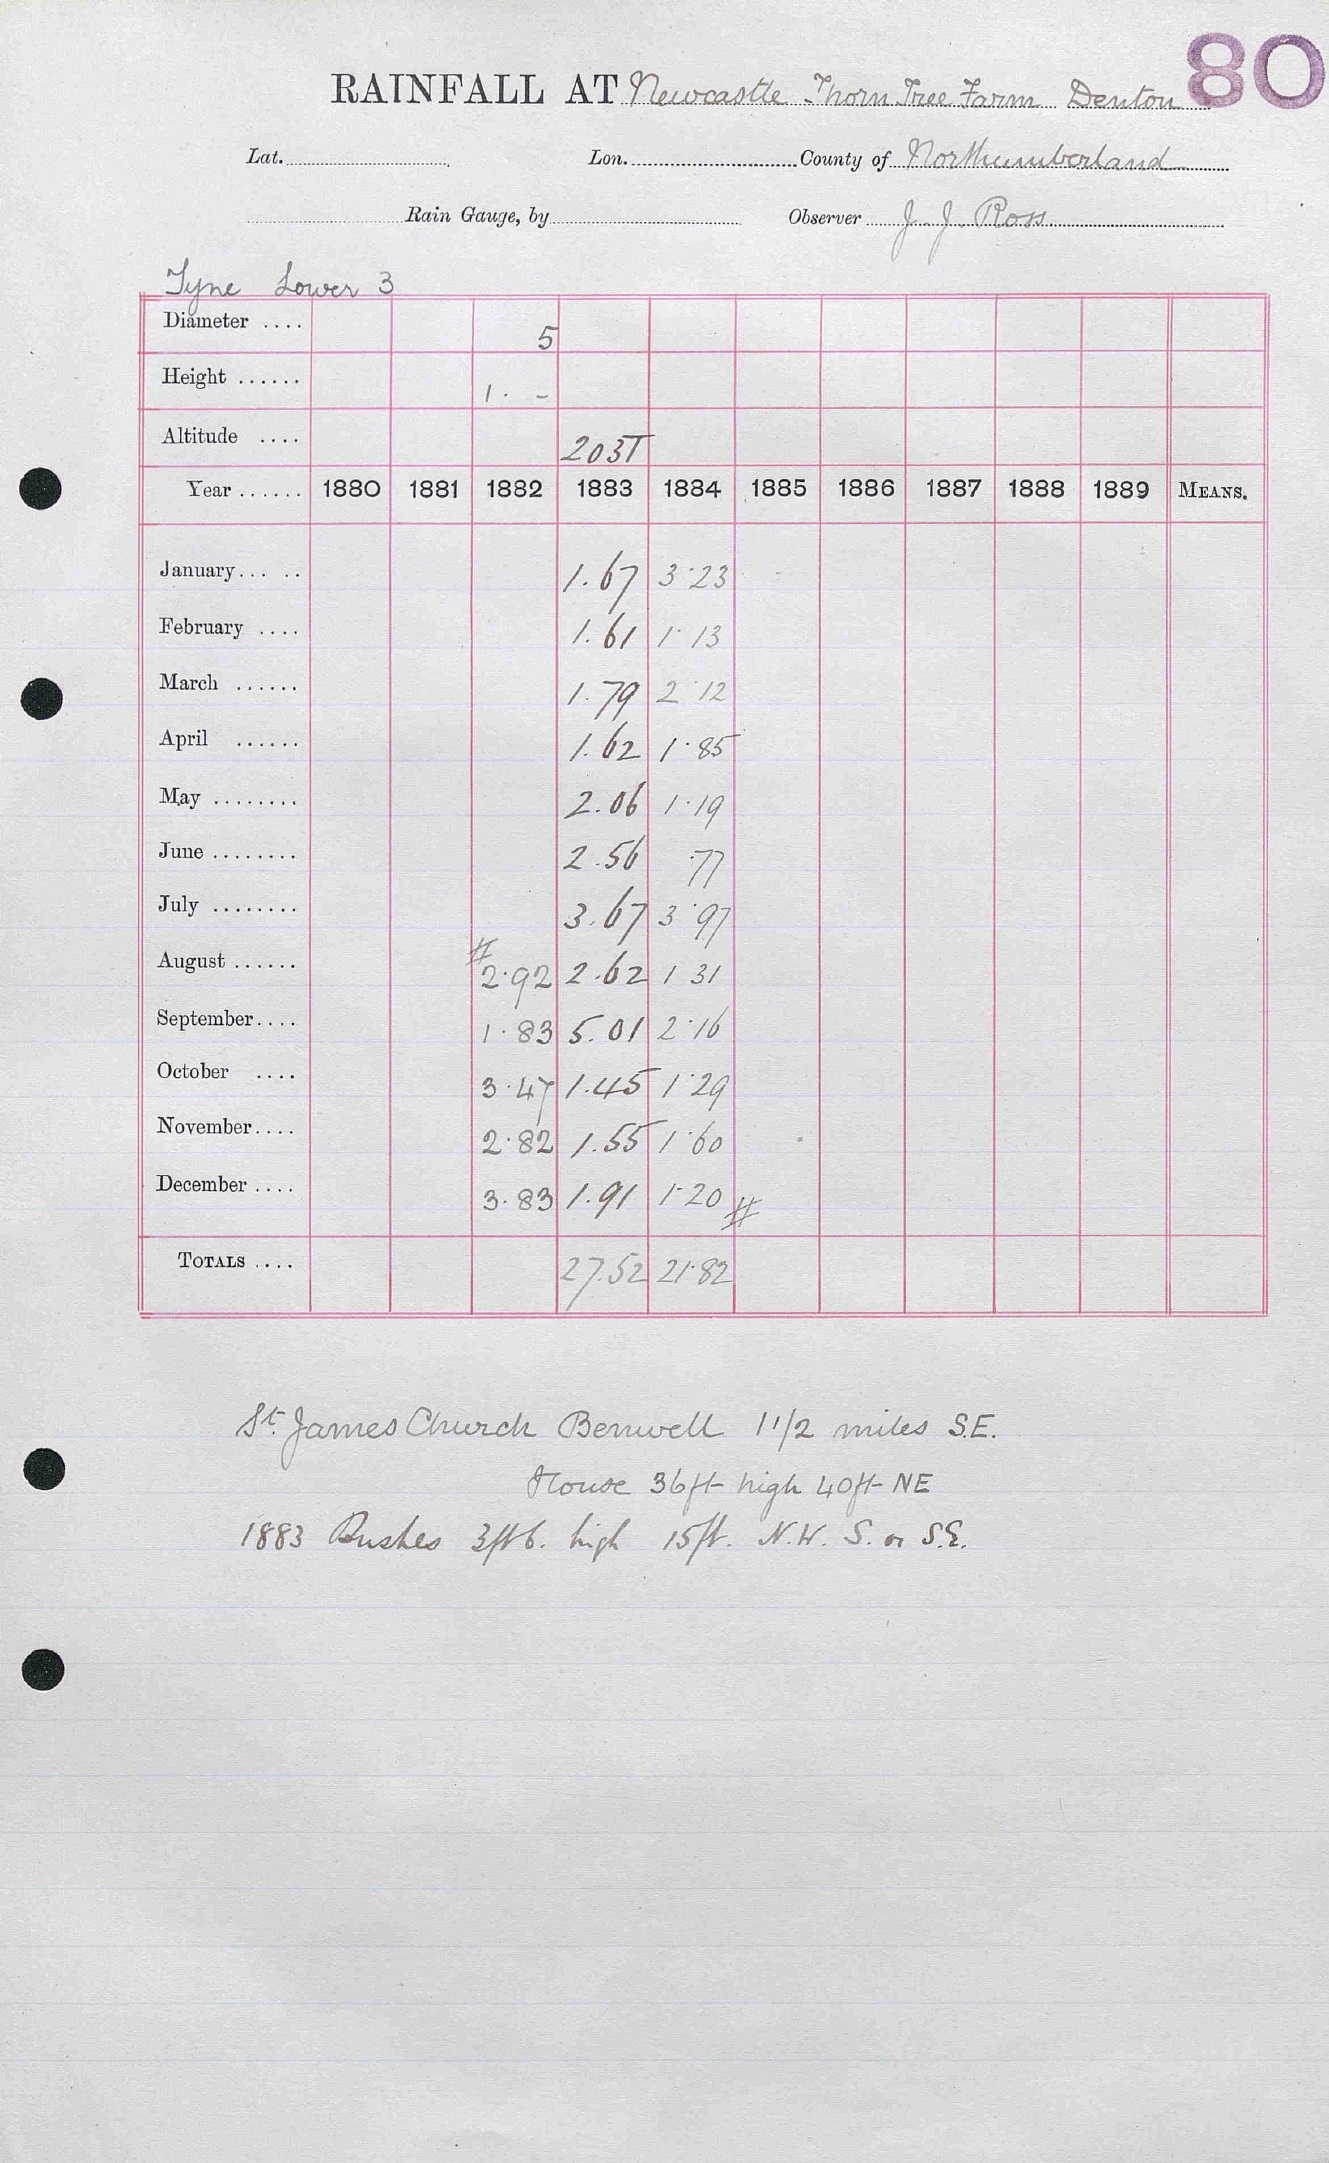 80
RAINFALL AT Newcastle Thorn Tree Farm Denton
Lat. Lon. County of Northumberland
Rain Gauge, by Observer J. J. Ross
Tyne Lower 3
Diameter .... 5
Height ...... 1 . –
Altitude .... 203T
Year ...... 1880 1881 1882 1883 1884 1885 1886 1887 1888 1889 MEANS.
January... .. 1.67 3·23
February .... 1.61 1·13
March ...... 1.79 2·12
April ...... 1.62 1·85
May ........ 2.06 1·19
June ........ 2.56 ·77
July ........ 3.67 3·97
August ...... # 2·92 2.62 1 31
September.... 1·83 5.01 2·16
October .... 3·47 1.45 1·29
November.... 2·82 1.55 1·60
December .... 3·83 1.91 1·20 #
TOTALS .... 27.52 21·82
St. James Church Benwell 1 1/2 miles S.E.
House 36ft high 40ft NE
1883 Bushes 3ft 6. high 15ft. N.W. S. or S.E.